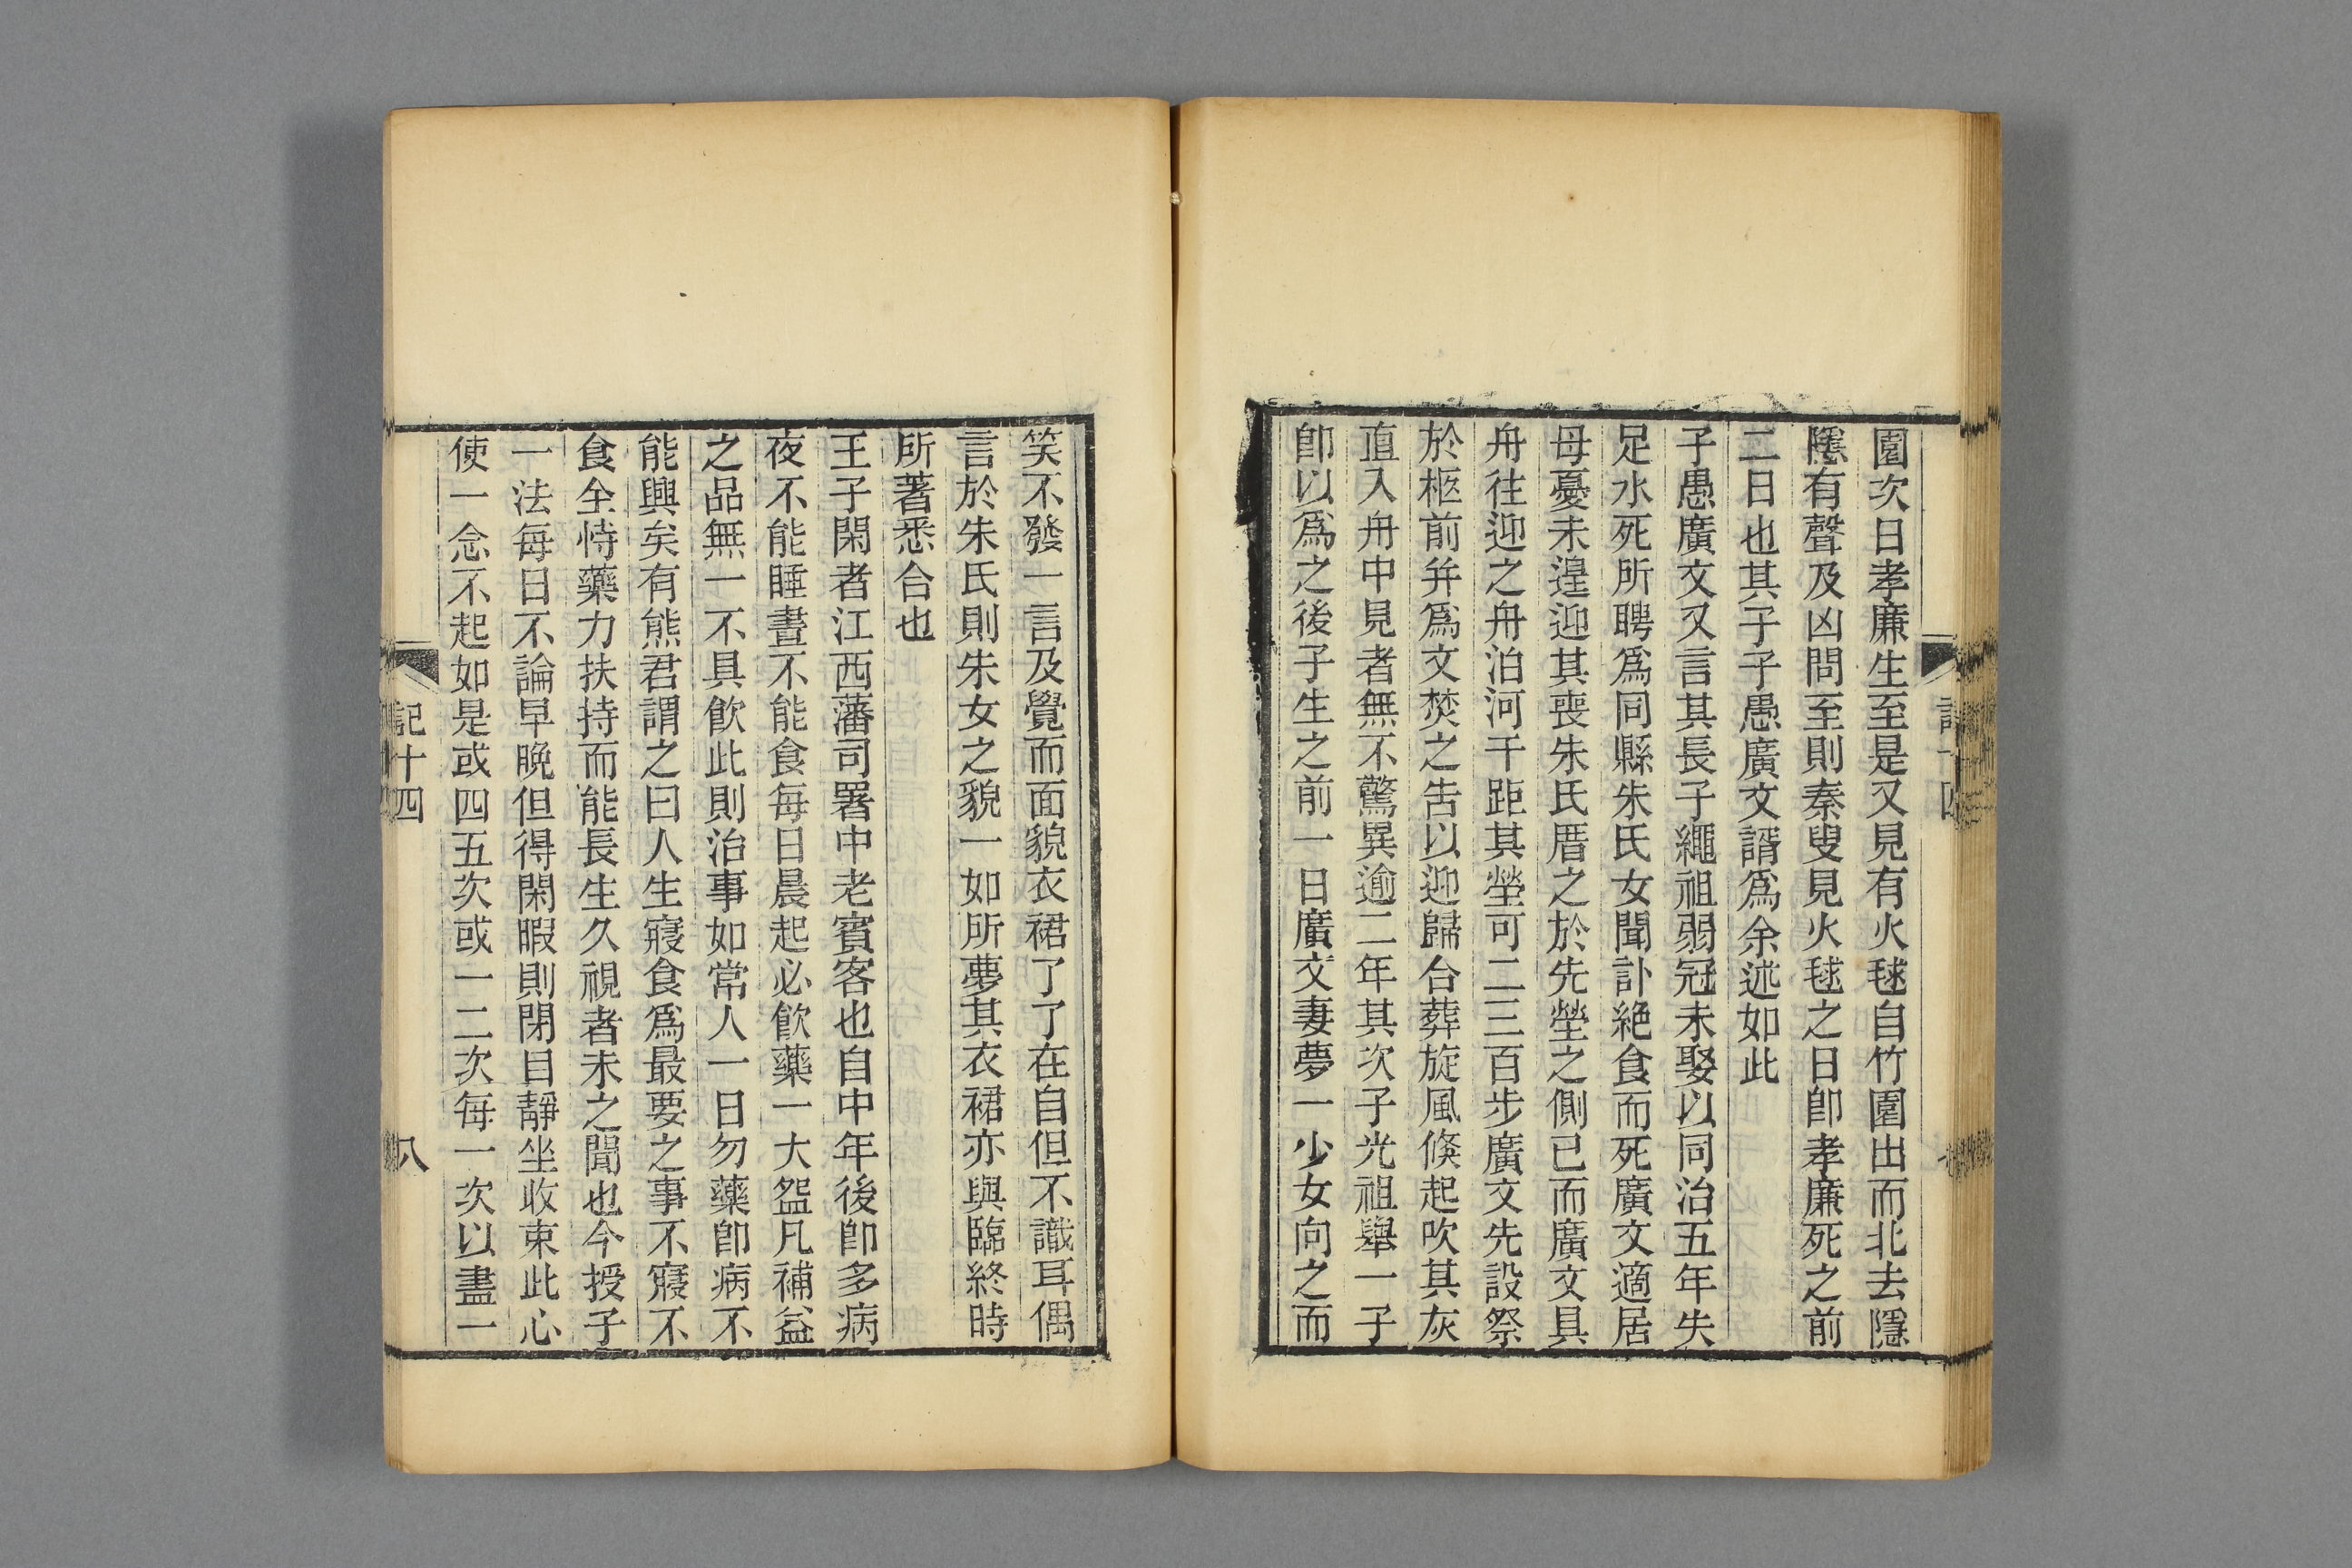 園次日孝廉生至是又見有火毬自竹園出而北去隱
隱有聲及凶問至則秦叟見火毬之日卽孝廉死之前
二日也其子子愚廣文諝爲余述如此
子愚廣文又言其長子繩祖弱冠未娶以同治五年失
足水死所聘爲同縣朱氏女聞訃絶食而死廣文適居
母憂未遑迎其喪朱氏厝之於先塋之側已而廣文具
舟往迎之舟泊河干距其塋可二三百步廣文先設祭
於柩前并爲文焚之告以迎歸合葬旋風倏起吹其灰
直入舟中見者無不驚異逾二年其次子光祖舉一子
卽以爲之後子生之前一日廣文妻夢一少女向之而
笑不發一言及覺而面貌衣裙了了在自但不識耳偶
言於朱氏則朱女之貌一如所夢其衣裙亦與臨終時
所著悉合也
王子閑者江西藩司署中老賓客也自中年後卽多病
夜不能睡晝不能食每日晨起必飮藥一大盌凡補益
之品無一不具飮此則治事如常人一日勿藥卽病不
能興矣有熊君謂之曰人生寢食爲最要之事不寢不
食全恃藥力扶持而能長生久視者未之聞也今授子
一法每日不論早晚但得閑暇則閉目靜坐收束此心
使一念不起如是或四五次或一二次每一次以盡一
記十四
八